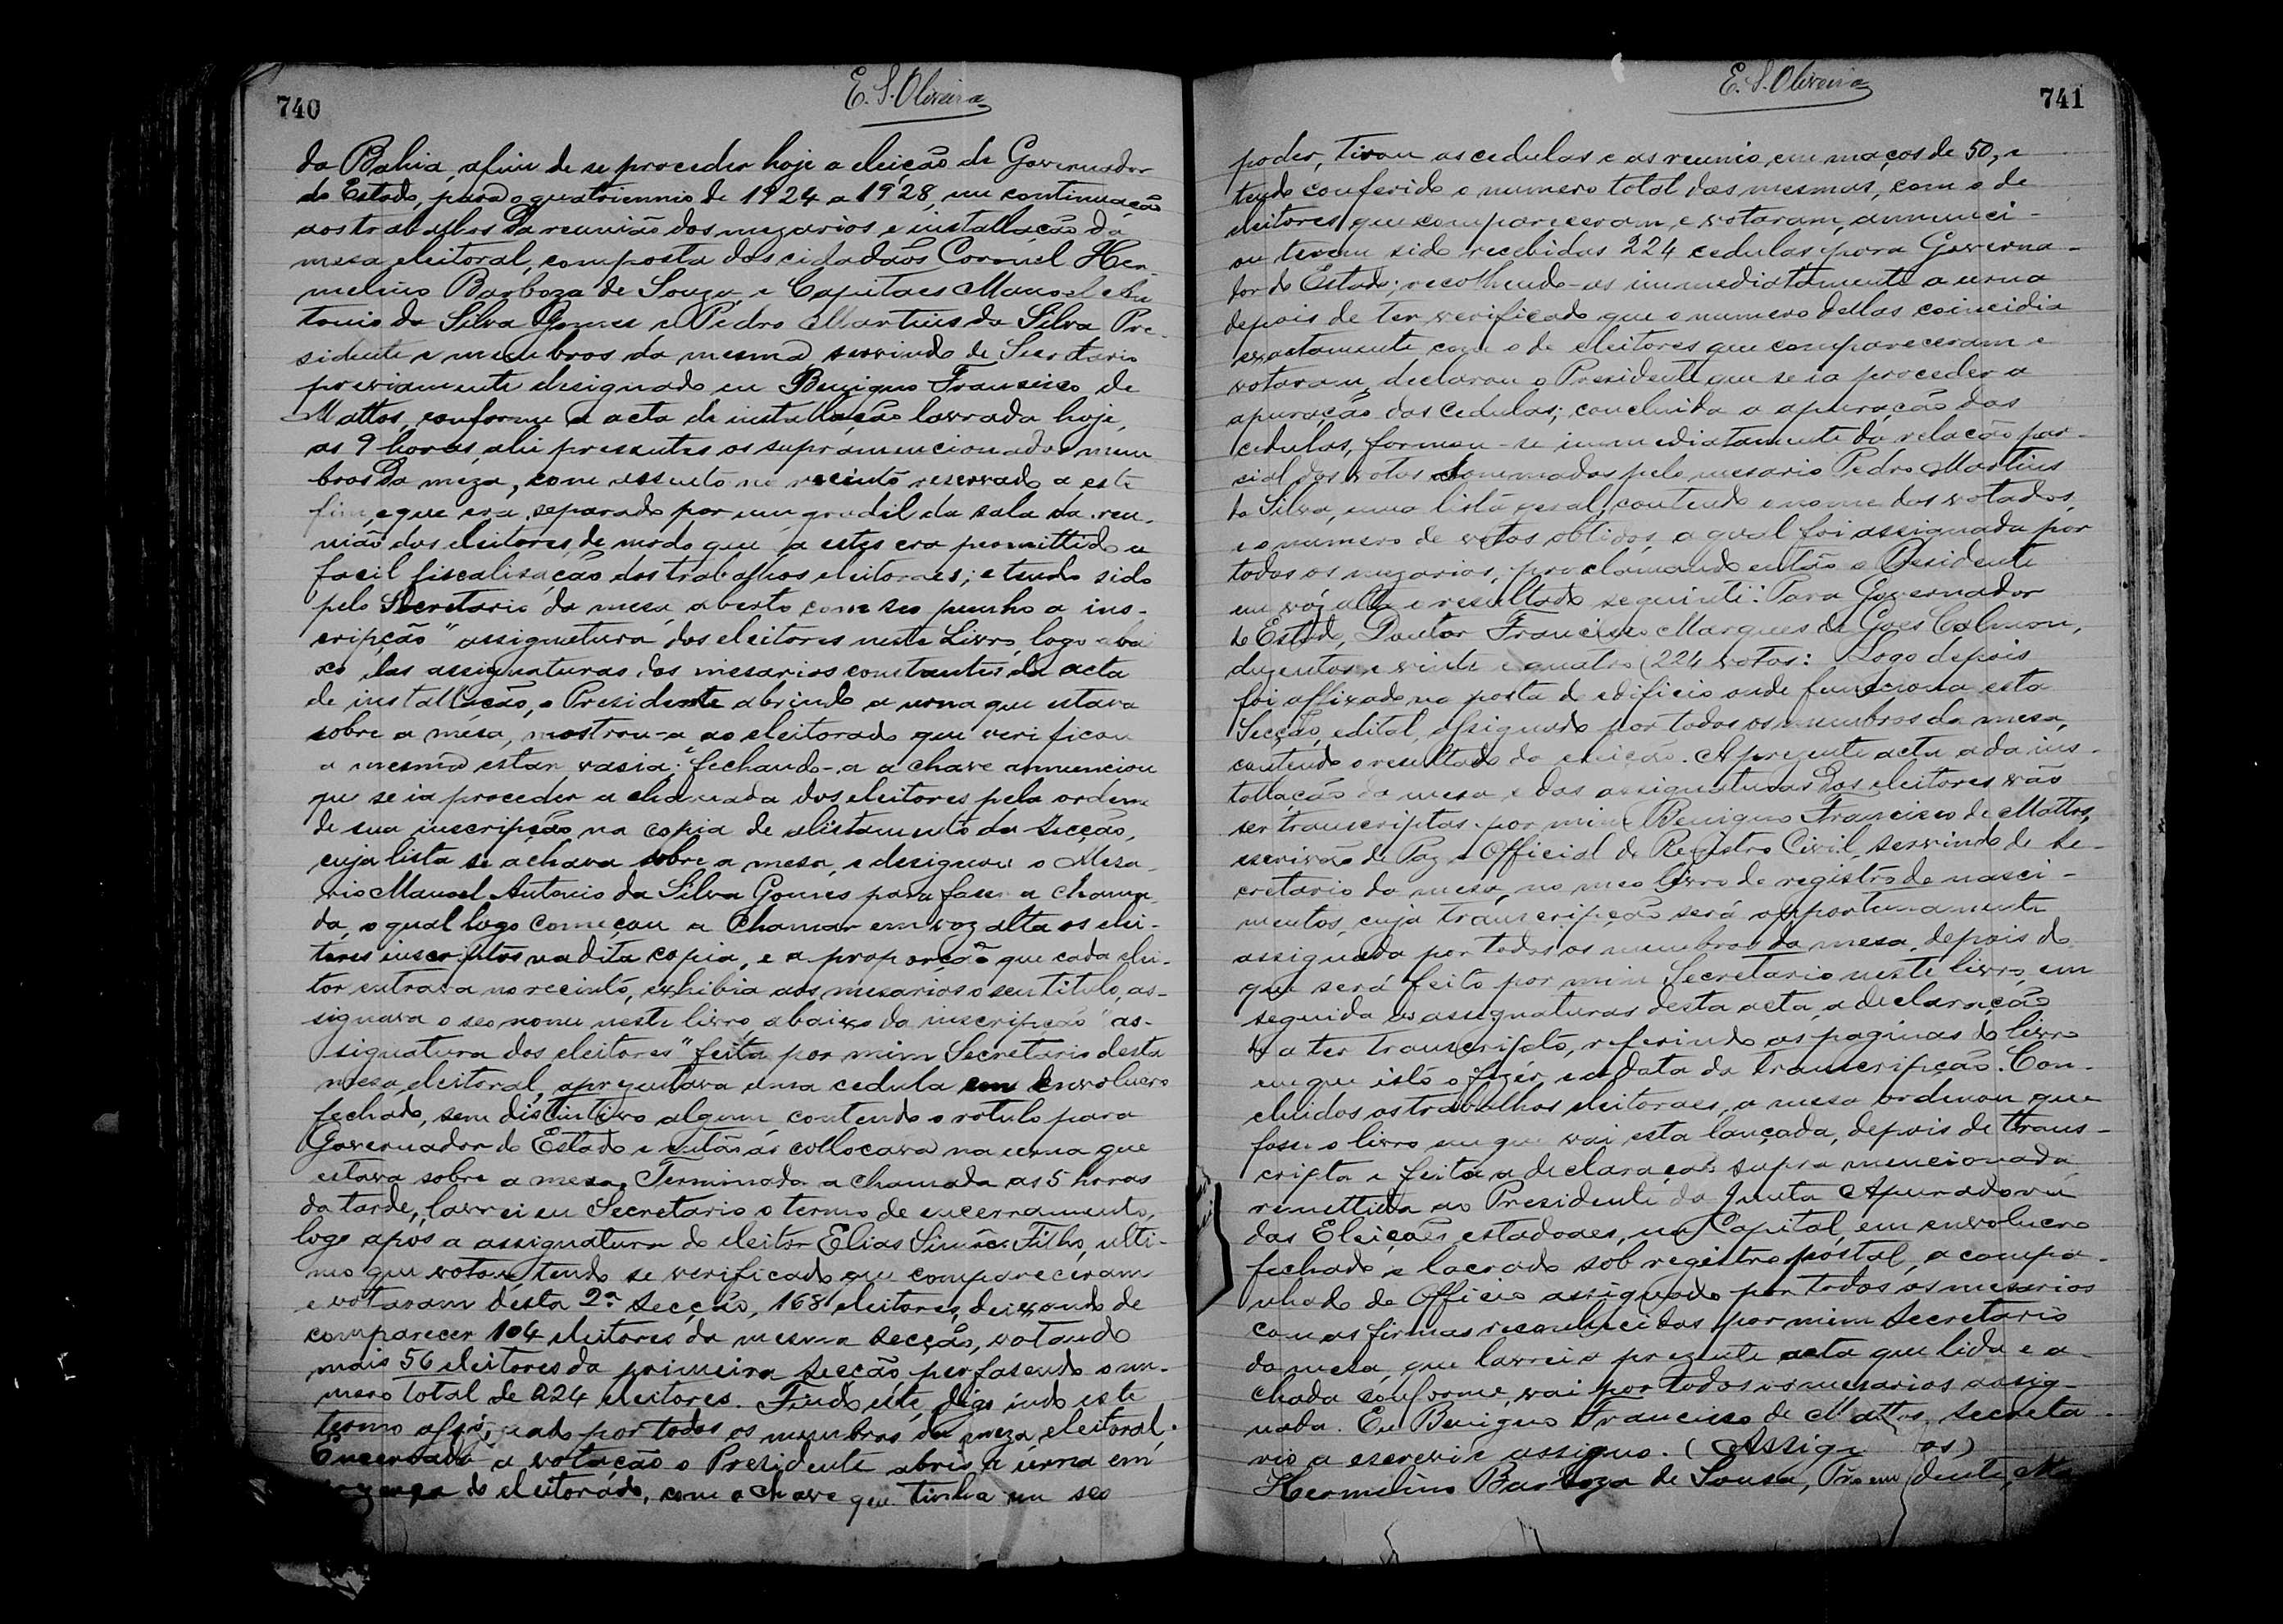 740
E. S. Oliveira
da Bahia, afim de se proceder hoje a eleição de Governador
do Estado, para o quatriennio de 1924 a 1928, em continuação
aos trabalhos da reunião dos mezarios e installação da
mesa eleitoral, composta dos cidadãos Coronel Her-
melino Barboza de Souza, e Capitães Manoel An
tonio da Silva Gomes e Pedro Martins da Silva Pre-
sidente e membros da mesma servindo de Secretario
previamente designado eu Benigno Francisco de
Mattos, conforme a acta de installação lavrada hoje,
as 9 horas, ahi presentes os supramencionados mem
bros da meza, com assento no recinto reservado a este
fim, e que era separado por um gradil da sala da reu-
nião dos eleitores, de modo que a estes era permittido a
facil fiscalisação dos trabalhos eleitoraes; e tendo sido
pelo Secretario da mesa aberto com seo punho a ins-
cripção "assignatura dos eleitores neste Livro, logo abai
xo das assignaturas dos mesarios constantes da acta
de installação, o Presidente abrindo a urna que estava
sobre a mesa, mostrou-a ao eleitorado que verificou
a mesma estar vasia; fechando-a a chave annunciou
que se ia proceder a chamada dos eleitores pela ordem
de sua inscripção na copia de alistamento da secção,
cuja lista se achava sobre a mesa, e designou o Mesa-
rio Manoel Antonio da Silva Gomes para faser a chama
da, o qual logo começou a chamar em voz alta os elei-
tores inscriptos na dita copia, e a proporção que cada elei-
tor entrava no recinto, exhibia aos mesarios o seu titulo, as-
signava o seo nome neste livro, abaixo da inscripção "as-
signatura dos eleitores" feita por mim Secretario desta
mesa eleitoral, aprezentava uma cedula em envolucro
fechado, sem distinctivo algum contendo o rotulo para
Governador do Estado e então as collocava na urna que
estava sobre a mesa. Terminada a chamada as 5 horas
da tarde, lavrei eu Secretario o termo de encerramento,
logo apos a assignatura do eleitor Elias Simões Filho, ulti-
mo que votou, tendo se verificado que compareceram
e votaram desta 2ª Secção, 168 eleitores, deixando de
comparecer 104 eleitores da mesma secção, votando
mais 56 eleitores da primeira Secção, perfasendo o nu-
mero total de 224 eleitores. Findo este, digo indo este
termo assignado por todos os membros da meza eleitoral.
Encerrada a votação o Presidente abrio a urna em
do eleitorado, com a chave que tinha em seo
E. S. Oliveira
741
poder, tirou as cedulas e as reunio em maços de 50, e
tendo conferido o numero total das mesmas, com o de
eleitores que compareceram e votaram, annunci-
ou terem sido recebidas 224 cedulas para Governa-
dor do Estado; recolhendo-as immediatamente a urna
depois de ter verificado que o numero dellas coincidia
exactamente com o de eleitores que compareceram e
votaram, declarou o Presidente que se ia proceder a
apuração das cedulas; concluida a apuração das
cedulas, formou-se immediatamente da relação par-
cial dos votos sommados pelo mesario Pedro Martins
da Silva, uma lista geral, contendo o nome dos votados,
e o numero de votos obtidos, a qual foi assignada por
todos os mezarios, proclamando então o Presidente
em vóz alta o resultado seguinte: Para Governador
do Estado, Doutor Francisco Marques de Goes Calmon,
duzentos e vinte e quatro (224 votos: Logo depois
foi affixado na porta do edificio onde funcciona esta
Secção, edital, assignado por todos os membros da mesa,
contendo o resultado da eleição. A prezente acta, a da ins-
tallação da mesa e das assignaturas dos eleitores vão
ser transcriptas por mim Benigno Francisco de Mattos,
escrivão de Paz e Official do Registro Civil, servindo de Se-
cretario da mesa, no meo livro de registro de nasci-
mentos, cuja transcripção será opportunamente
assignada por todos os membros da mesa, depois do
que será feito por mim Secretario neste livro, em
seguida as assignaturas desta acta, a declaração
de a ter transcripto, referindo as paginas do livro
em que isto o fizér, e a data da transcripção. Con-
cluidos os trabalhos eleitoraes, a mesa ordenou que
fosse o livro em que vai esta lançada, depois de trans-
cripta e feita a declaração supra mencionada,
remettida ao Presidente da Junta Apuradora
das Eleições estadoaes, na Capital, em envolucro
fechado e lacrado sob registro postal, acompa-
nhado de Officio assignado por todos os mesarios
com as firmas reconhecidas por mim Secretario
da mesa, que lavrei a prezente acta que lida e a-
chada conforme, vai por todos os mesarios assig-
nada. Eu Benigno Francisco de Mattos, Secreta-
rio a escrevi e assigno. (Assig os)
Hermelino Barboza de Sousa,